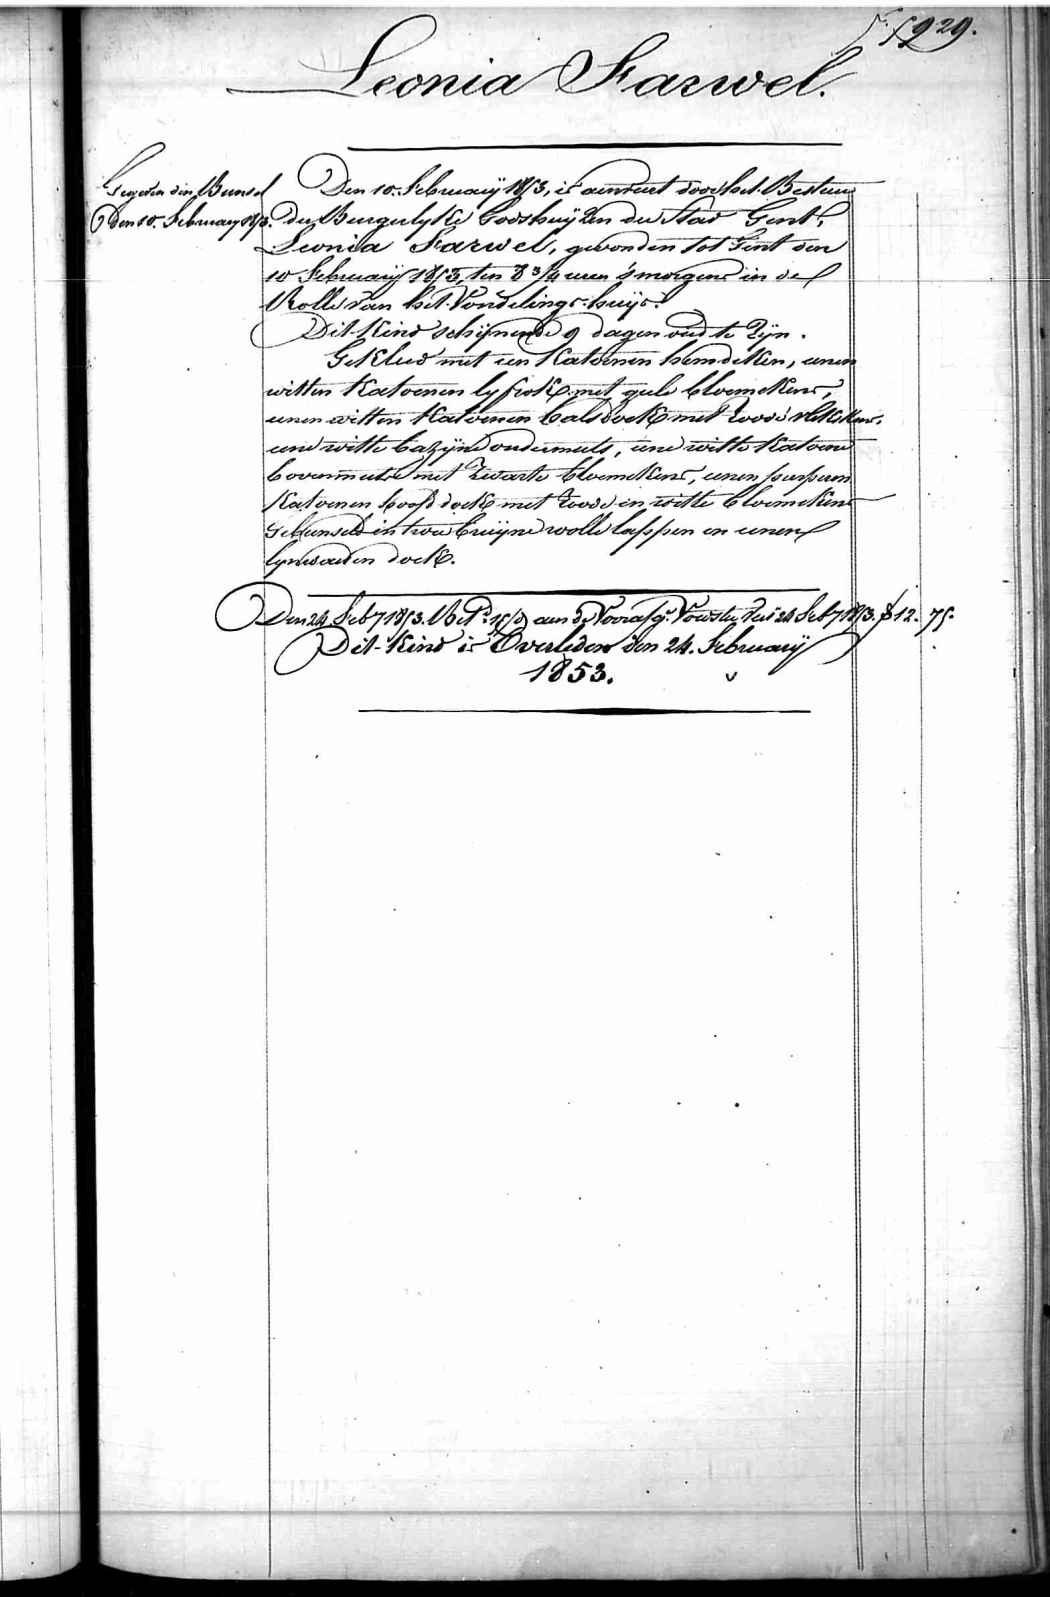 F° 929.
Leonia Farwel.
Gegeven den Bunsel
Den 10 February 1853.
Den 10. February 1853, is aenveert door het Bestuur
der Burgerlyke Godshuyzen der Stad Gent,
Leonia Farwel, gevonden tot Gent den
10 February 1853, ten 8 3/4 uren 's morgens in de
Rolle van het Vondelings-huys.
Dit Kind schynende 9 dagen oud te zyn.
Gekleed met een Katoenen hemdeken, eenen
witten Katoenen lyfrok met geele bloemekens,
eenen witten Katoenen halsdoek met roode vlekskens,
eene witte bazyne ondermuts, eene witte Katoene
bovenmuts met zwarte bloemekens, eenen purperen
Katoenen hoofddoek met roode en witte bloemekens
Gebunseld in twee bruyne wolle lappen en eenen
lynwaeden doek.
Den 24 Feb 1853. Bet. aen de Voorsz. Voedster tot 24 Feb 1853. f 12. 75.
Dit Kind is Overleden den 24. February
1853.